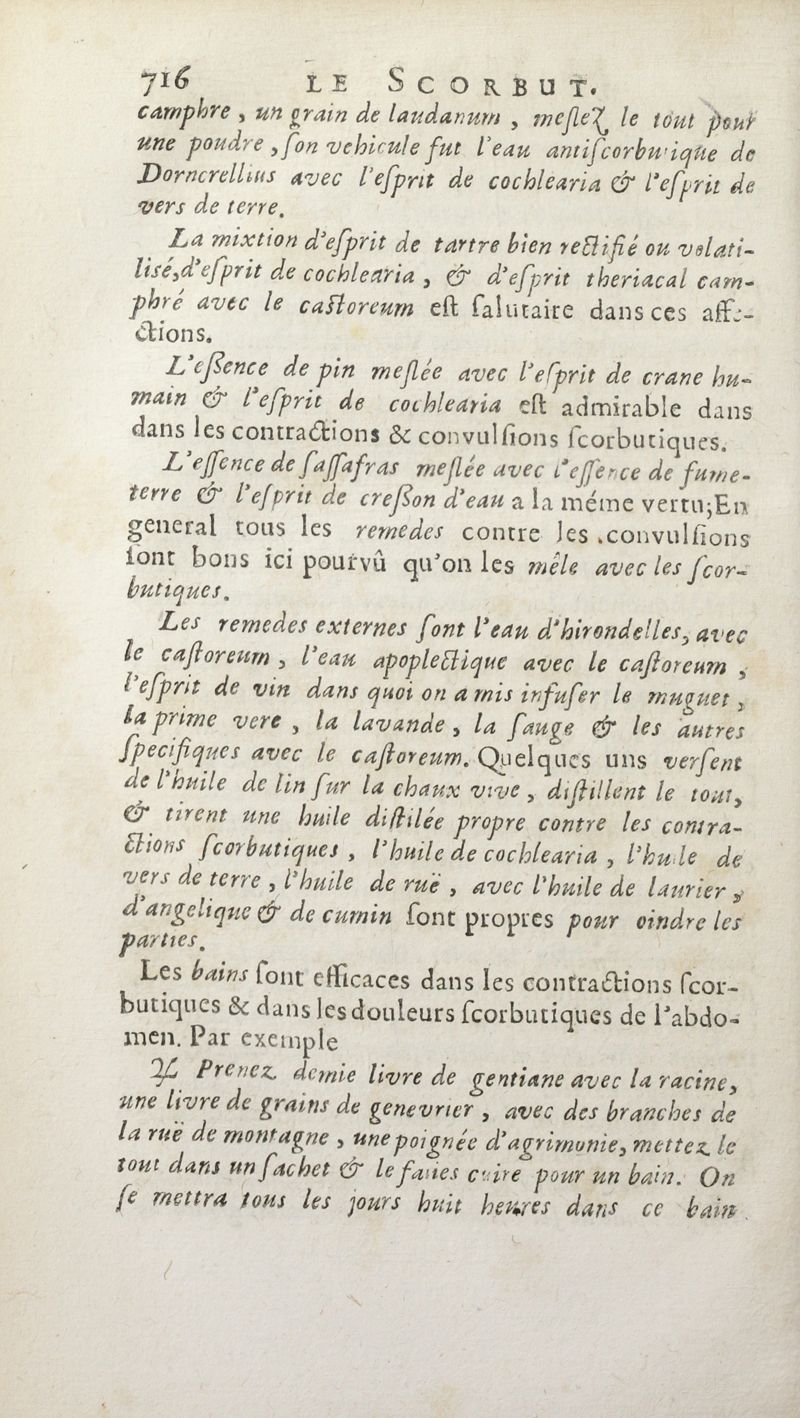 716 LE SCORBUT.
camphre, un grain de laudanum, meſlez le tout pour
une poudre, ſon vehicule fut l'eau antiſcorbutique de
Dorncrellius avec l'eſprit de cochlearia & l'eſprit de
vers de terre.
La mixtion d'eſprit de tartre bien rectifié ou volati-
lisé, d'eſprit de cochlearia, & d'eſprit theriacal cam-
phré avec le caſtoreum eſt ſalutaire dans ces affe-
ctions.
L'eſſence de pin meſlée avec l'eſprit de crane hu-
main & l'eſprit de cochlearia eſt admirable dans
dans les contractions & convulſions ſcorbutiques.
L'eſſence de ſaſſafras meſlée avec l'eſſence de fume-
terre & l'eſprit de creſſon d'eau a la méme vertu; En
general tous les remedes contre les convulſions
ſont bons ici pourvû qu'on les mêle avec les ſcor-
butiques.
Les remedes externes ſont l'eau d'hirondelles, avec
le caſtoreum, l'eau apoplectique avec le caſtoreum,
l'eſprit de vin dans quoi on a mis infuſer le muguet,
la prime vere, la lavande, la ſauge & les autres
ſpecifiques avec le caſtoreum. Quelques uns verſent
de l'huile de lin ſur la chaux vive, diſtillent le tout,
& tirent une huile diſtilée propre contre les contra-
ctions ſcorbutiques, l'huile de cochlearia, l'huile de
vers de terre, l'huile de ruë, avec l'huile de laurier,
d'angelique & de cumin ſont propres pour oindre les
parties.
Les bains ſont efficaces dans les contractions ſcor-
butiques & dans les douleurs ſcorbutiques de l'abdo-
men. Par exemple
℞ Prenez demie livre de gentiane avec la racine,
une livre de grains de genevrier, avec des branches de
la ruë de montagne, une poignée d'agrimonie, mettez le
tout dans un ſachet & le faites cuire pour un bain. On
ſe mettra tous les jours huit heures dans ce bain